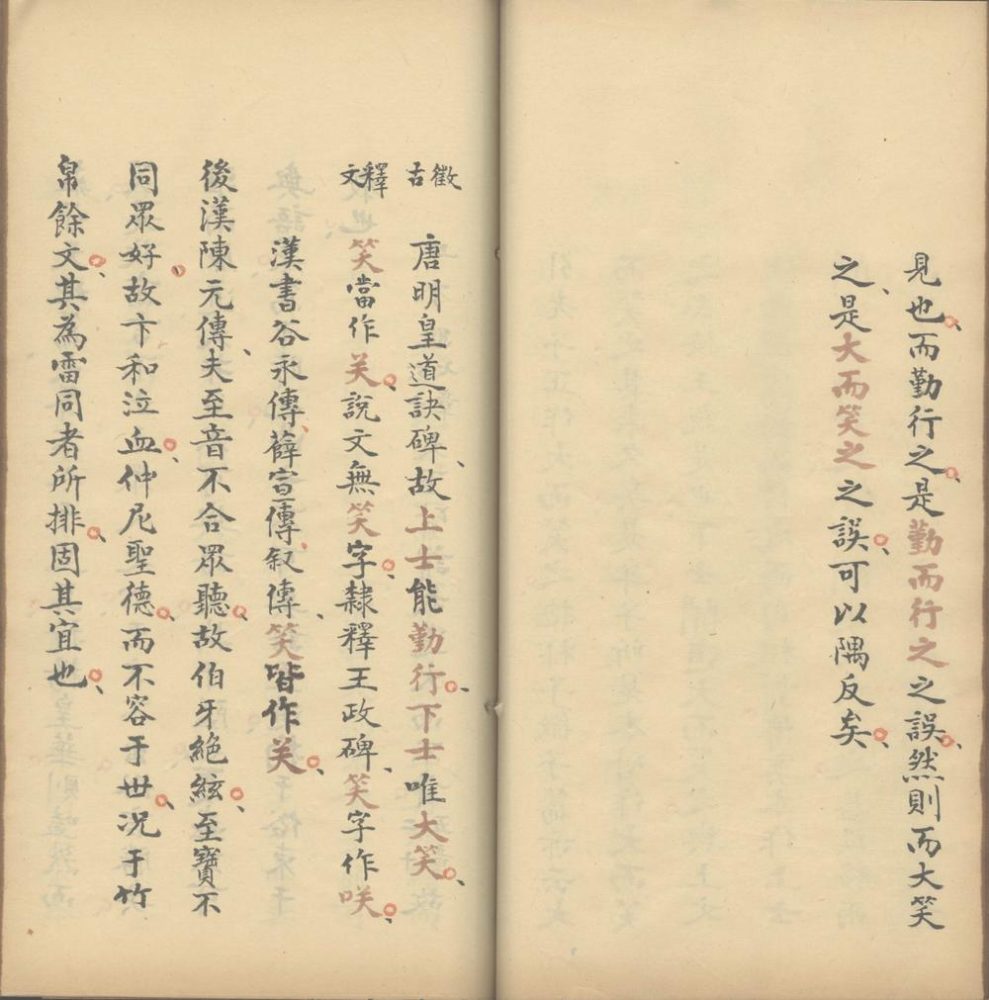 見也而勤行之是勤而行之之誤然則而大笑
之是大而笑之之誤可以隅反矣
徵古
唐明皇道訣碑故上士能勤行下士唯大笑
釋文
笑當作关說文無笑字隸釋王政碑笑字作咲
漢書谷永傳薛宣傳叙傳笑皆作关
後漢陳元傳夫至音不合眾聽故伯牙絕絃至寶不
同眾好故卞和泣血仲尼聖德而不容于世况于竹
帛餘文其為雷同者所排固其宜也